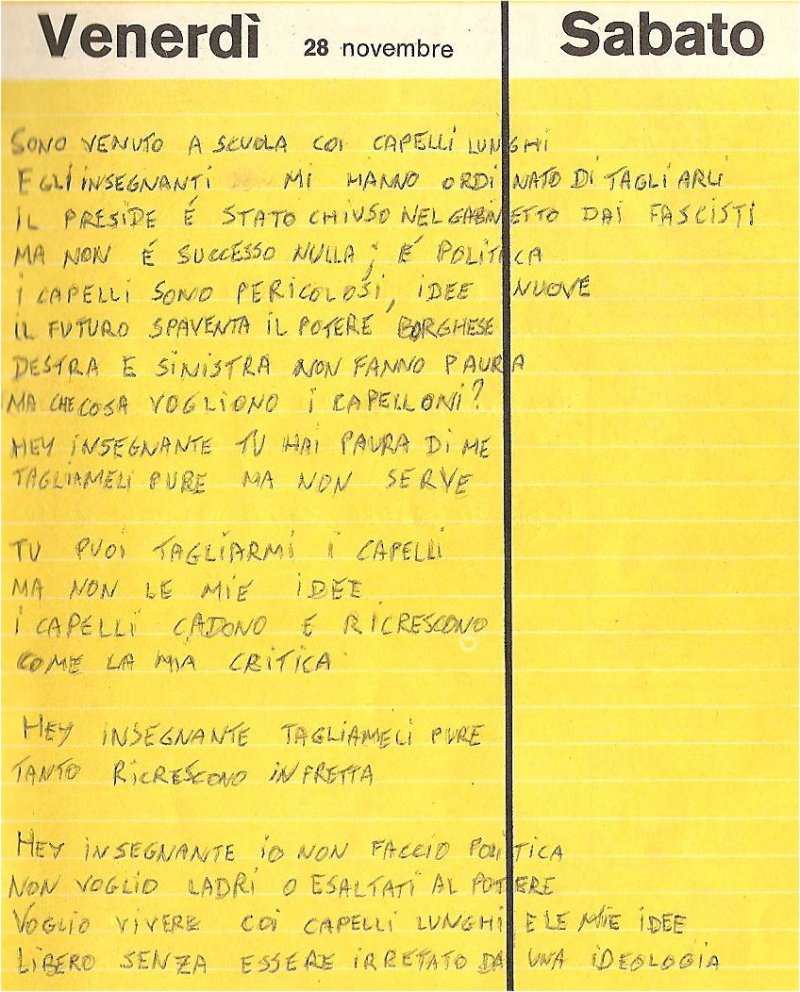 Venerdì 28 novembre Sabato
SONO VENUTO A SCUOLA COI CAPELLI LUNGHI
E GLI INSEGNANTI MI HANNO ORDINATO DI TAGLIARLI
IL PRESIDE É STATO CHIUSO NEL GABINETTO DAI FASCISTI
MA NON É SUCCESSO NULLA; É POLITICA
I CAPELLI SONO PERICOLOSI, IDEE NUOVE
IL FUTURO SPAVENTA IL POTERE BORGHESE
DESTRA E SINISTRA NON FANNO PAURA
MA CHE COSA VOGLIONO I CAPELLONI?
HEY INSEGNANTE TU HAI PAURA DI ME
TAGLIAMELI PURE MA NON SERVE
TU PUOI TAGLIARMI I CAPELLI
MA NON LE MIE IDEE
I CAPELLI CADONO E RICRESCONO
COME LA MIA CRITICA
HEY INSEGNANTE TAGLIAMELI PURE
TANTO RICRESCONO IN FRETTA
HEY INSEGNANTE IO NON FACCIO POLITICA
NON VOGLIO LADRI O ESALTATI AL POTERE
VOGLIO VIVERE COI CAPELLI LUNGHI E LE MIE IDEE
LIBERO SENZA ESSERE IRRETATO DA UNA IDEOLOGIA